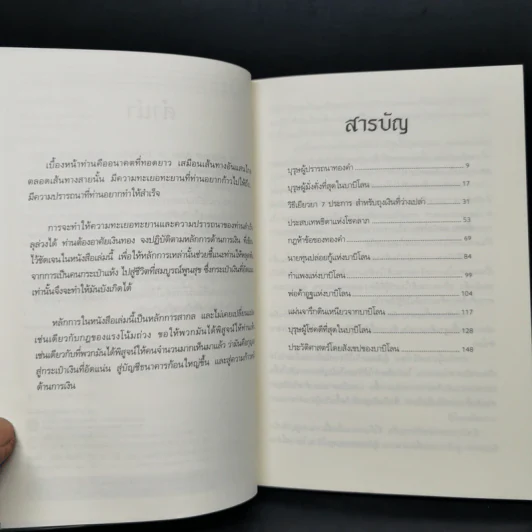 เบื้องหน้าท่านคืออนาคตที่ทอดยาว เสมือนเส้นทางอันแสนไกล
ตลอดเส้นทางสายนั้น มีความทะเยอทะยานที่ท่านอยากก้าวไปให้ถึง
มีความปรารถนาที่ท่านอยากทำให้สำเร็จ
การจะทำให้ความทะเยอทะยานและความปรารถนาของท่านสำเร็จ
ลุล่วงได้ ท่านต้องอาศัยเงินทอง จงปฏิบัติตามหลักการด้านการเงิน
ไว้ชัดเจนในหนังสือเล่มนี้ เพื่อให้หลักการเหล่านั้นช่วยชี้แนะท่านให้หลุดพ้น
จากการเป็นคนกระเป๋าแห้ง ไปสู่ชีวิตที่สมบูรณ์พูนสุข ซึ่งกระเป๋าเงินที่อัด
เท่านั้นจึงจะทำให้มันบังเกิดได้
หลักการในหนังสือเล่มนี้เป็นหลักการสากล และไม่เคยเปลี่ยนแปลง
เช่นเดียวกับกฎของแรงโน้มถ่วง ขอให้พวกมันได้พิสูจน์ให้ท่าน
เช่นเดียวกับที่พวกมันได้พิสูจน์ให้คนจำนวนมากเห็นมาแล้ว ว่ามันคือ
สู่กระเป๋าเงินที่อัดแน่น สู่บัญชีธนาคารก้อนใหญ่ขึ้น และสู่ความก้าวหน้า
ด้านการเงิน
สารบัญ
บุรุษผู้ปรารถนาทองคำ 9
บุรุษผู้มั่งคั่งที่สุดในบาบิโลน 17
วิธีเยียวยา 7 ประการ สำหรับถุงเงินที่ว่างเปล่า 31
ประสบเทพธิดาแห่งโชคลาภ 53
กฎห้าข้อของทองคำ 69
นายทุนปล่อยกู้แห่งบาบิโลน 84
กำแพงแห่งบาบิโลน 99
พ่อค้าอูฐแห่งบาบิโลน 104
แผ่นจารึกดินเหนียวจากบาบิโลน 117
บุรุษผู้โชคดีที่สุดในบาบิโลน 128
ประวัติศาสตร์โดยสังเขปของบาบิโลน 148